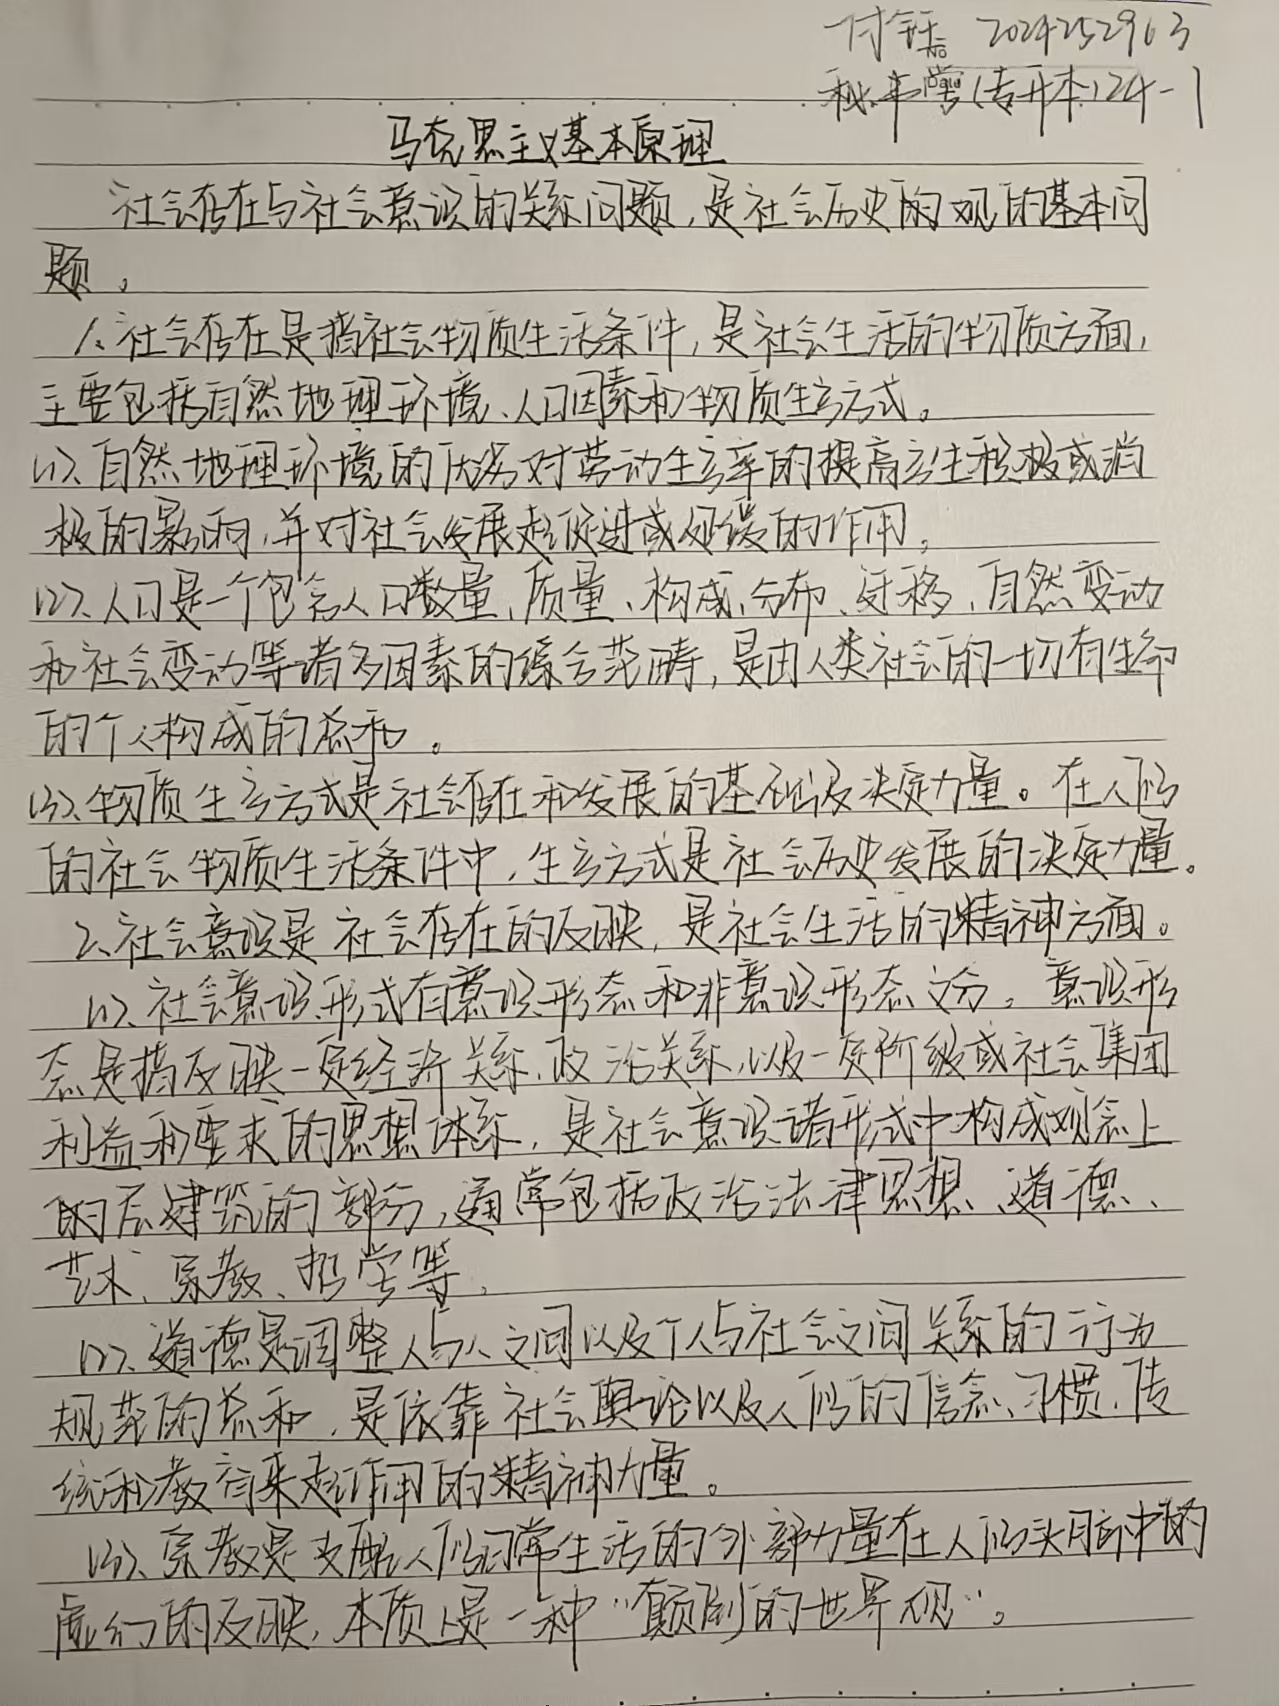 付 2024252963
秘书学(专升本)24-1
马克思主义基本原理
社会存在与社会意识的关系问题，是社会历史的观的基本问
题。
1、社会存在是指社会物质生活条件，是社会生活的物质方面，
主要包括自然地理环境、人口因素和物质生产方式。
(1)、自然地理环境的优劣对劳动生产率的提高产生积极或消
极的影响，并对社会发展起促进或延缓的作用。
(2)、人口是一个包含人口数量、质量、构成、分布、迁移、自然变动
和社会变动等诸多因素的综合范畴，是由人类社会的一切有生命
的个人构成的总和。
(3)、物质生产方式是社会存在和发展的基础及决定力量。在人们
的社会物质生活条件中，生产方式是社会历史发展的决定力量。
2、社会意识是社会存在的反映，是社会生活的精神方面。
(1)、社会意识形式有意识形态和非意识形态之分。意识形
态是指反映一定经济关系、政治关系，以及一定阶级或社会集团
利益和要求的思想体系，是社会意识诸形式中构成观念上
的层建筑的部分，通常包括政治法律思想、道德、
艺术、宗教、哲学等。
(2)、道德是调整人与人之间以及个人与社会之间关系的行为
规范的总和，是依靠社会舆论以及人们的信念、习惯、传
统和教育来起作用的精神力量。
(3)、宗教是支配人们日常生活的外部力量在人们头脑中的
虚幻的反映，本质上是一种“颠倒的世界观”。